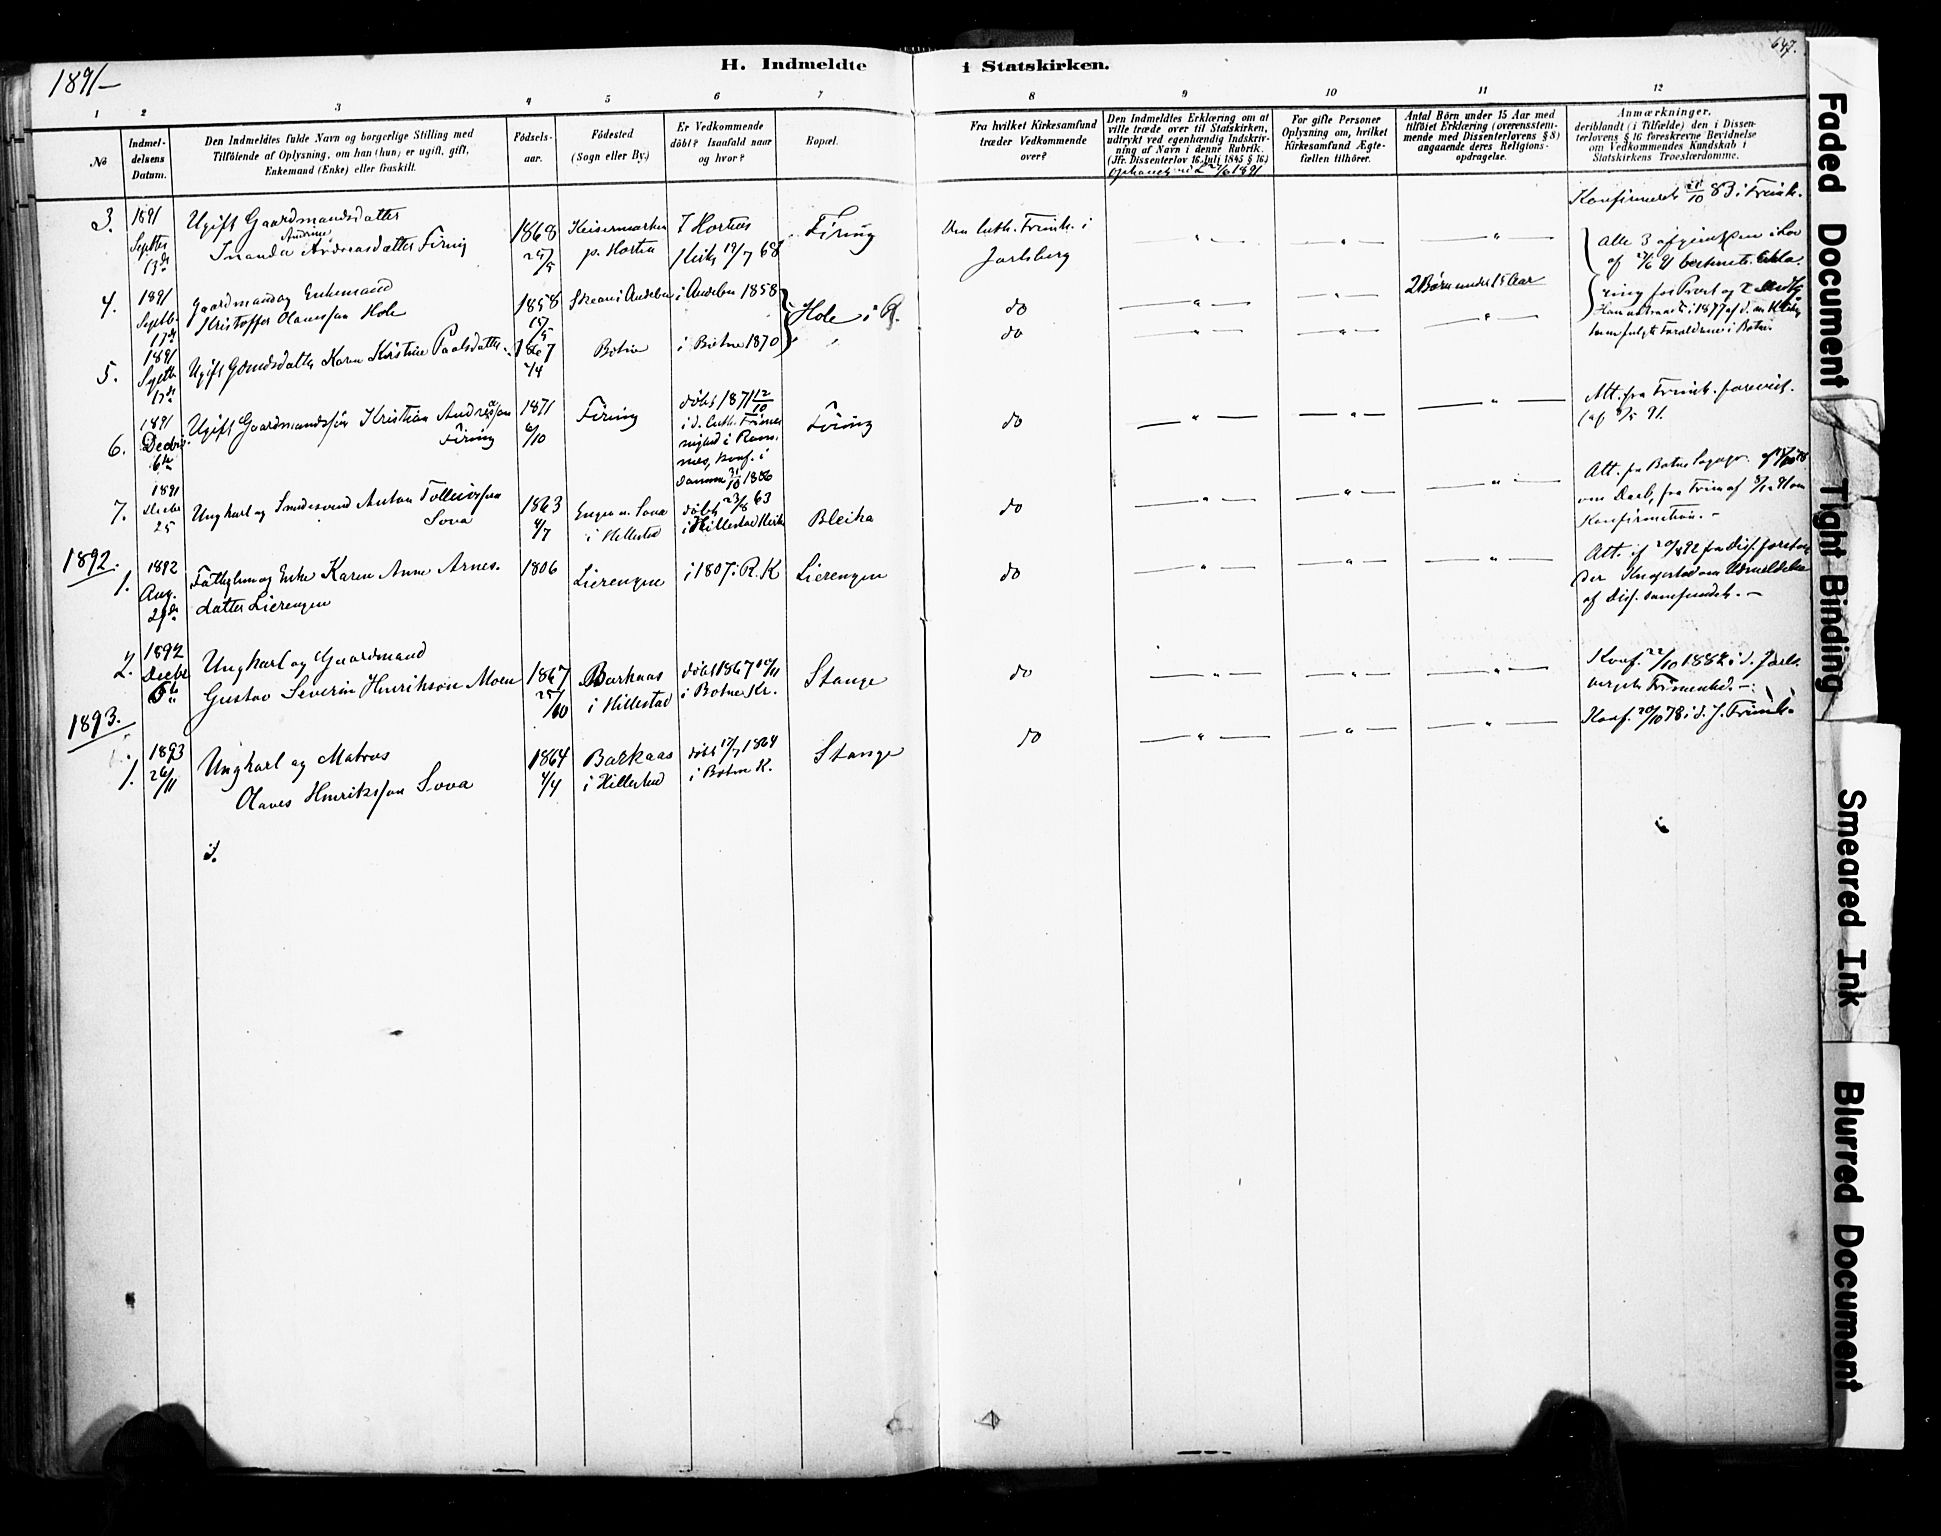 1891-
H. Indmeldte i Statskirken.
647.
1 2 3 4 5 6 7 8 9 10 11 12
No
Indmel-
delsens
Datum.
Den Indmeldtes fulde Navn og borgerlige Stilling med
Tilföiende af Oplysning, om han (hun) er ugift, gift,
Enkemand (Enke) eller fraskilt.
Födsels-
aar.
Födested
(Sogn eller By.)
Er Vedkommende
döbt? Isaafald naar
og hvor?
Bopæl.
Fra hvilket Kirkesamfund
træder Vedkommende
over?
Den Indmeldtes Erklæring om at
ville træde over til Statskirken,
udtrykt ved egenhændig Indskriv-
ning af Navn i denne Rubrik.
(Jfr. Dissenterlov 16 Juli 1845 § 16.)
For gifte Personer
Oplysning om, hvilket
Kirkesamfund Ægte-
fællen tilhörer.
Antal Börn under 15 Aar med
tilföiet Erklæring (overensstem-
mende med Dissenterlovens § 8)
angaaende deres Religions-
opdragelse.
Anmærkninger,
deriblandt (i Tilfælde) den i Dissen-
terlovens § 16 foreskrevne Bevidnelse
om Vedkommendes Kundskab i
Statskirkens Troeslærdomme.
3.
1891
Septbr
13de
Ugift Gaardmandsdatter
Andrine
Andreasdatter Firing
1868
29/5
p. Horten
I Hortens
Kirke 19/7 68
Firing
Den luth. Frimk. i
Jarlsberg
Konfirmeret 21/10 83 i Frimk.
4.
1891
Septb.
17de
Gaardmand og Enkemand
Kristoffer Olavessøn Hole
1858
Skeau i Andebu
i Andebu 1858
Hole i R.
do
2 Børn under 15 Aar
Alle 3 afgivet
5.
1891
Septb.
17de
Ugift Gmdsdatter Karen Kirstine Paalsdatter
1867
Botne
i Botne 1870
do
6.
1891
Decbr.
6te
Ugift Gaardmandssøn Kristian Andreassøn
Firing
1871
6/10
Firing
døbt 1871 12/10
i d. luth. Frime-
nighed i Ram-
nes, konf. i
samme 31/10 1886
Firing
do
Att. fra Frimk. forevist.
7.
1891
Decbr
25
Ungkarl og Smedesvend Anton Tollevssøn
Sova
1863
4/7
Engen u. Sova
i Hillestad
døbt 23/8 63
i Hillestad Kirke
Bleika
do
Konfirmation.-
1892.
1.
1892
Aug.
29de
Fattiglem og Enke Karen Anne Arnes-
datter Lierengen
1806
Lierengen
i 1807 i R. K
Lierengen
do
Att. af 20/8 92 fra Diss. forstan-
der Knapestad om Udmeldelse
af Diss. samfundet. -
2.
1892
Decbr
5te
Ungkarl og Gaardmand
Gustav Severin Henriksøn Moen
1867
25/10
Barkaas
i Hillestad
døbt 1867 10/11
i Botne Kr.
Stange
do
Konf. 22/10 1882 i d. Jarls-
bergske Frimenhed. -
1893.
1.
1893
26/11
Ungkarl og Matros
Olaves Henrikssøn Sova
1864
4/4
Barkaas
i Hillestad
døbt 17/7 1864
i Botne K.
Stange
do
Konf. 20/10 78 i d. J. Frimk.
Faded Document
Tight Binding
Smeared Ink
Blurred Document